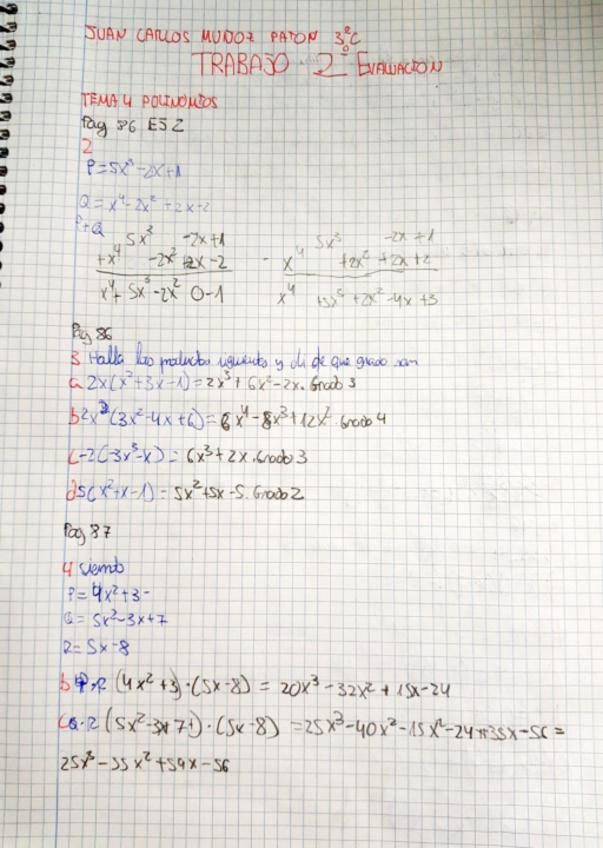 JUAN CARLOS MUÑOZ PATON 3ºC
TRABAJO 2º EVALUACION
TEMA 4 POLINOMIOS
Pag 86 ES 2
2
P=5x³-2x+1
Q=x⁴-2x²+2x-2
P+Q
5x³ -2x+1 5x³ -2x+1
+x⁴ -2x² +2x-2 - x⁴ +2x² +2x+2
x⁴+5x³-2x² 0-1 x⁴ +5x³ +2x² -4x +3
Pag 86
3 Halla los productos siguientes y di de que grado son
a 2x(x²+3x-1)=2x³+6x²-2x. Grado 3
b 2x²(3x²-4x+6)=6x⁴-8x³+12x². Grado 4
c -2(-3x³-x)=6x³+2x. Grado 3
d 5(x²+x-1)=5x²+5x-5. Grado 2
Pag 87
4 siendo
P=4x²+3-
Q=5x²-3x+7
R=5x-8
b P·R (4x²+3)·(5x-8) = 20x³-32x²+15x-24
c Q·R (5x²-3x+7)·(5x-8) =25x³-40x²-15x²-24x+35x-56=
25x³-55x²+59x-56